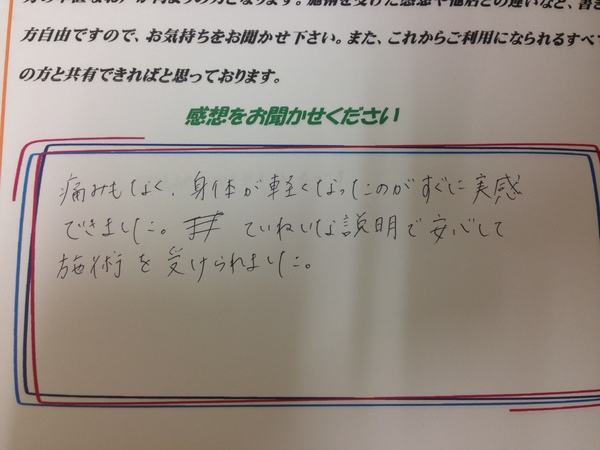 方自由ですので、お気持ちをお聞かせ下さい。また、これからご利用になられるすべ
の方と共有できればと思っております。
感想をお聞かせください
痛みもなく、身体が軽くなったのがすぐに実感
できました。ていねいな説明で安心して
施術を受けられました。